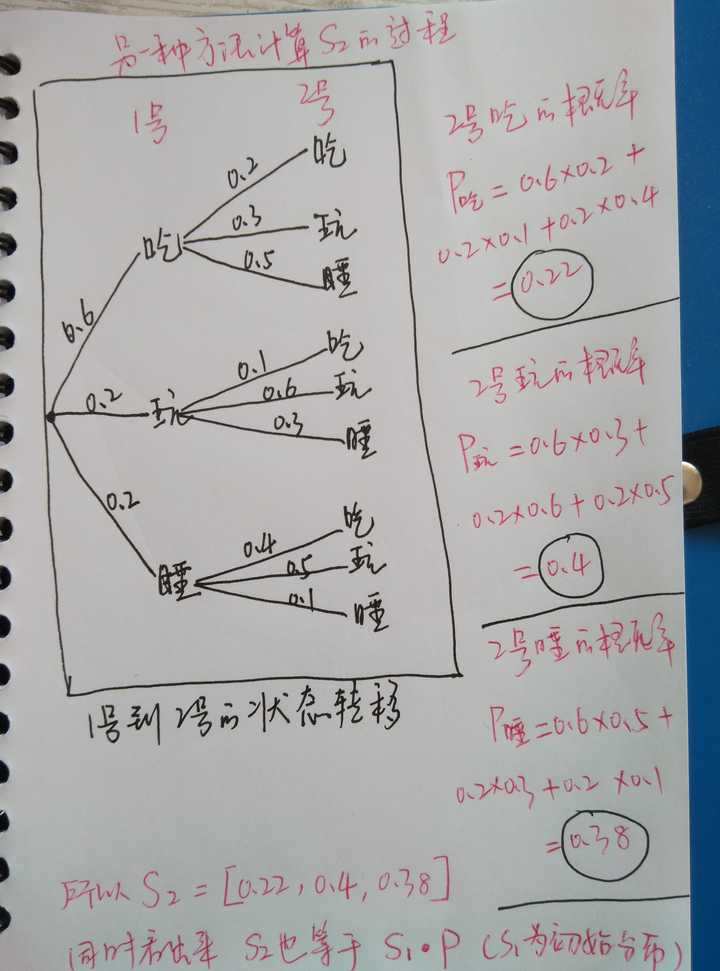 另一种方法计算S₂的过程
1号 2号
0.6
吃
0.2 吃
0.3 玩
0.5 睡
0.2
玩
0.1 吃
0.6 玩
0.3 睡
0.2
睡
0.4 吃
0.5 玩
0.1 睡
1号到2号的状态转移
2号吃的概率
P吃 = 0.6×0.2 +
0.2×0.1 + 0.2×0.4
= 0.22
2号玩的概率
P玩 = 0.6×0.3 +
0.2×0.6 + 0.2×0.5
= 0.4
2号睡的概率
P睡 = 0.6×0.5 +
0.2×0.3 + 0.2×0.1
= 0.38
所以 S₂ = [0.22, 0.4, 0.38]
同时看出来 S₂也等于 S₁·P (S₁为初始分布)